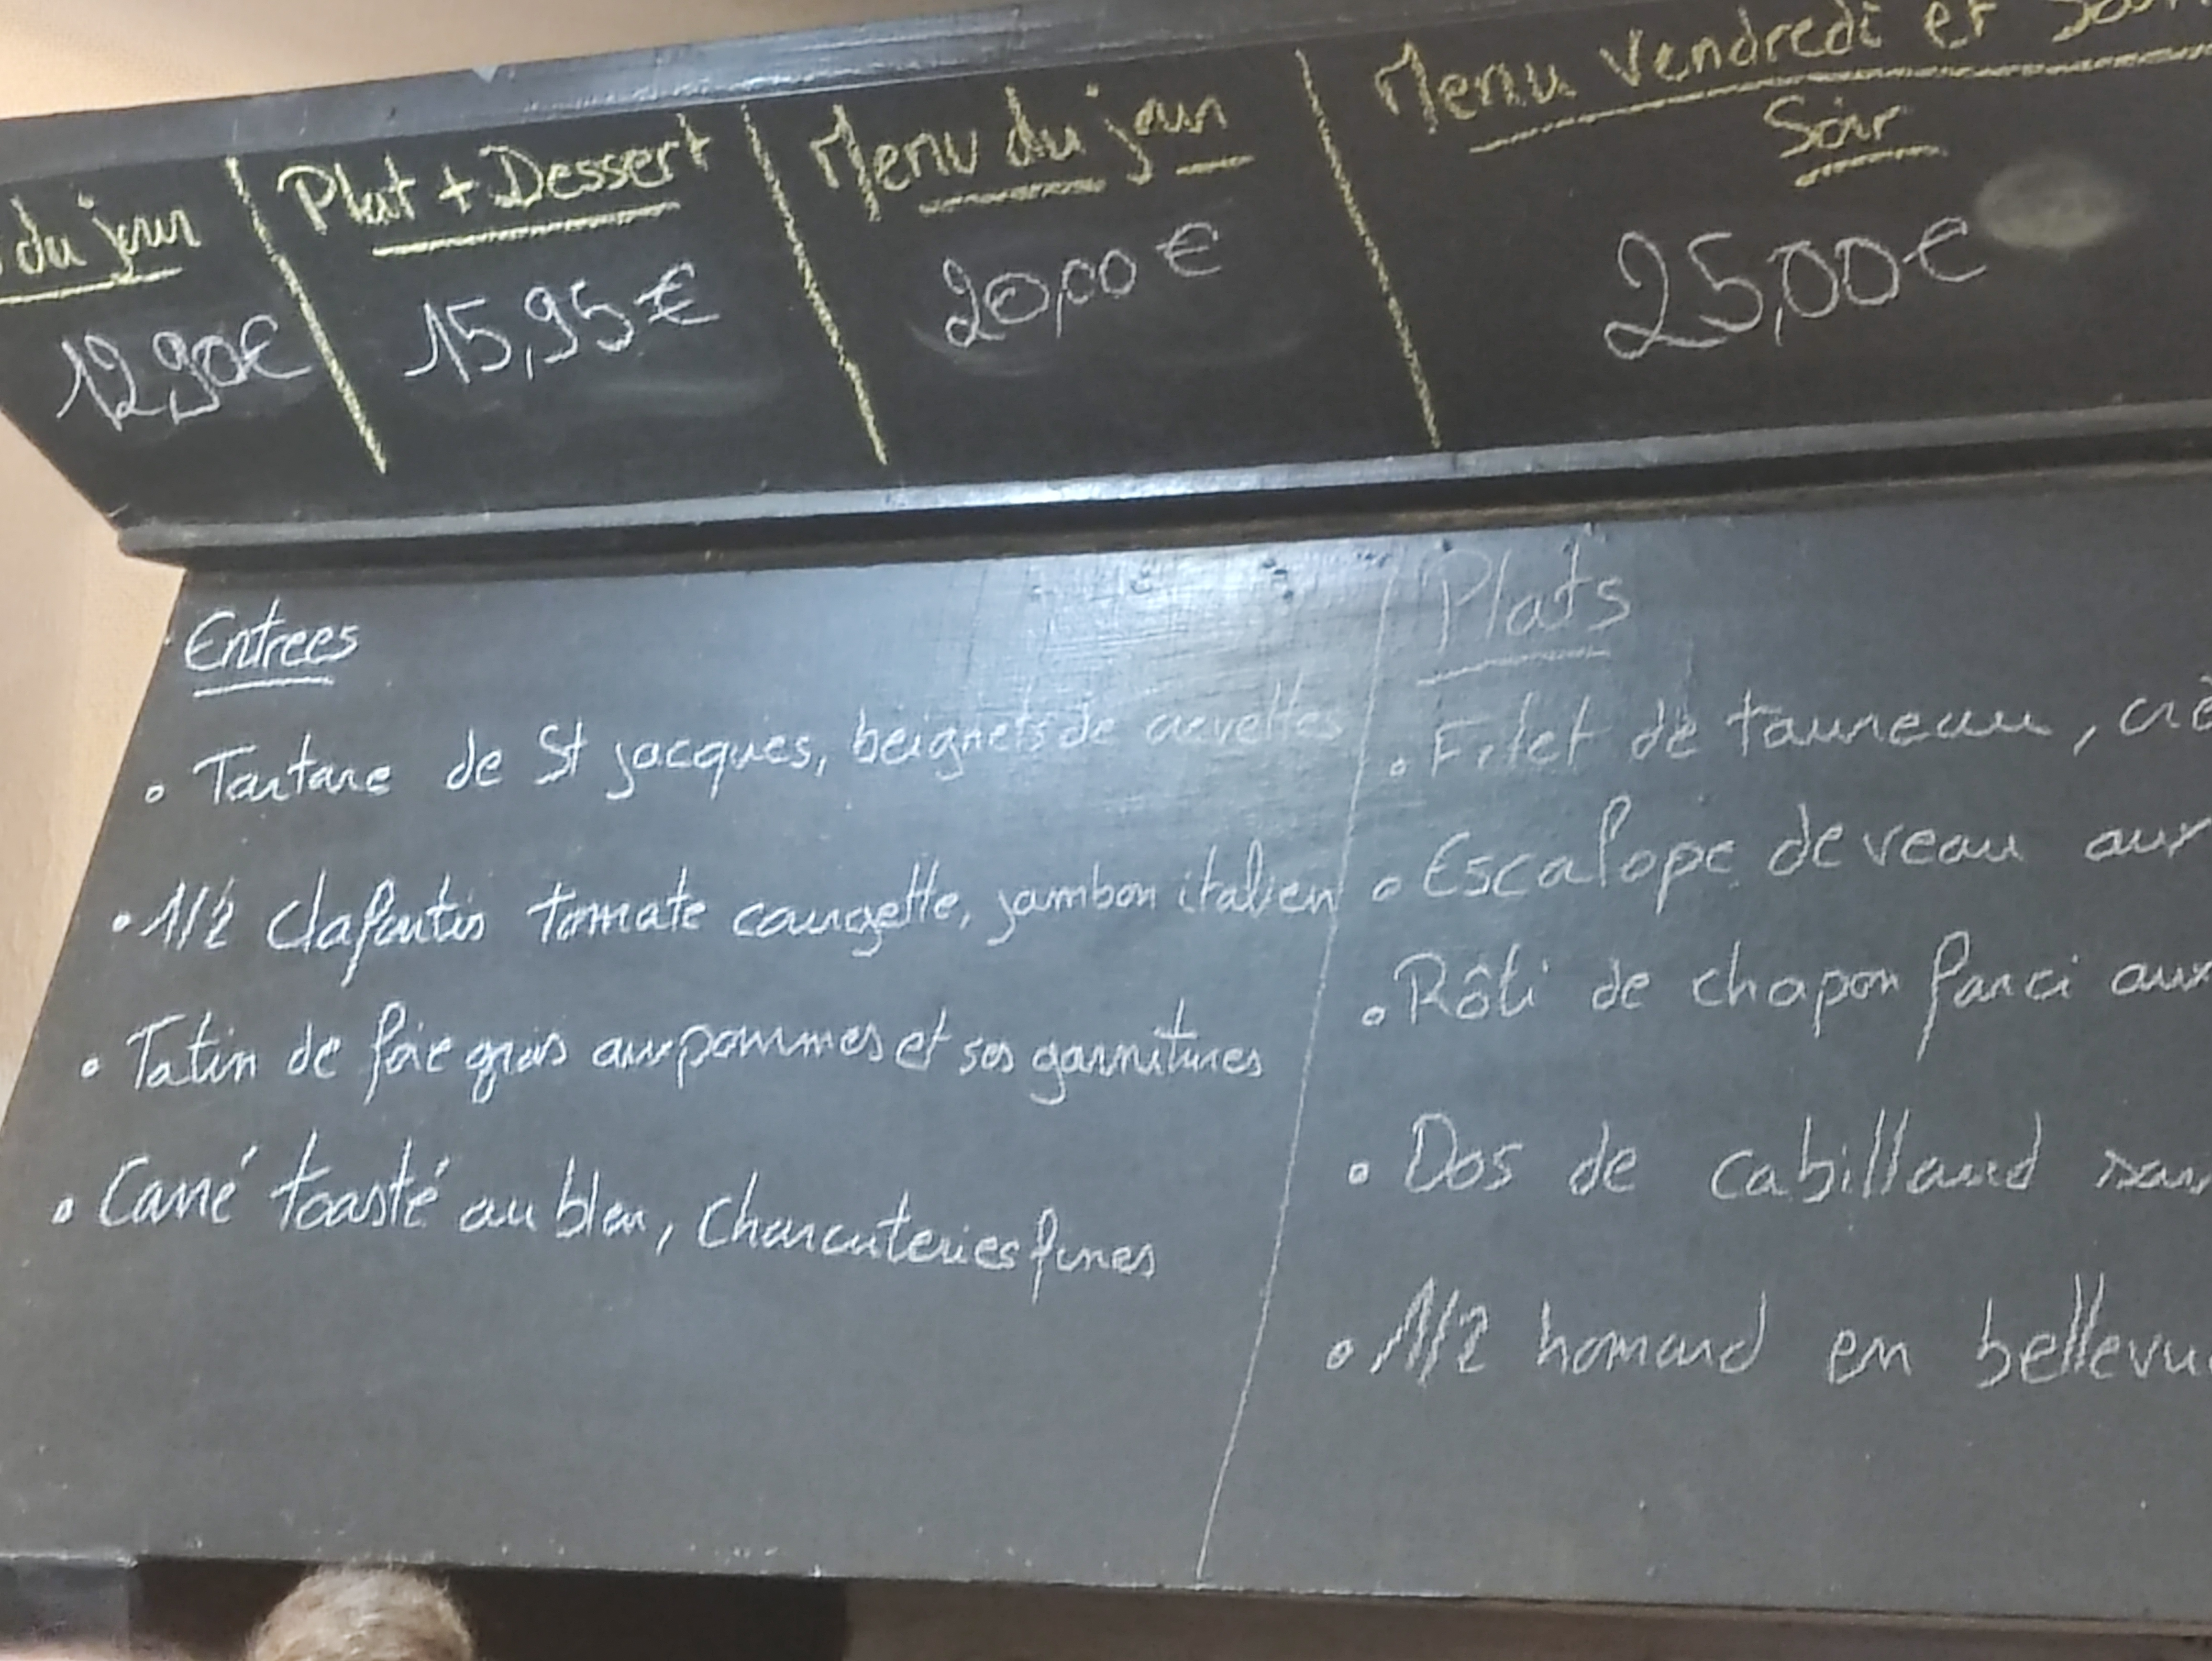 du jour
12,90€
Plat + Dessert
15,95€
Menu du jour
20,00€
Menu Vendredi et
Soir
25,00€
Entrees
• Tartare de St jacques, beignets de crevettes
• 1/2 clafoutis tomate courgette, jambon italien
• Tatin de foie gras aux pommes et ses garnitures
• Carré toasté au bleu, charcuteries fines
Plats
• Filet de taureau, crè
• Escalope de veau aux
• Rôti de chapon farci aux
• Dos de cabillaud
• 1/2 homard en bellevue